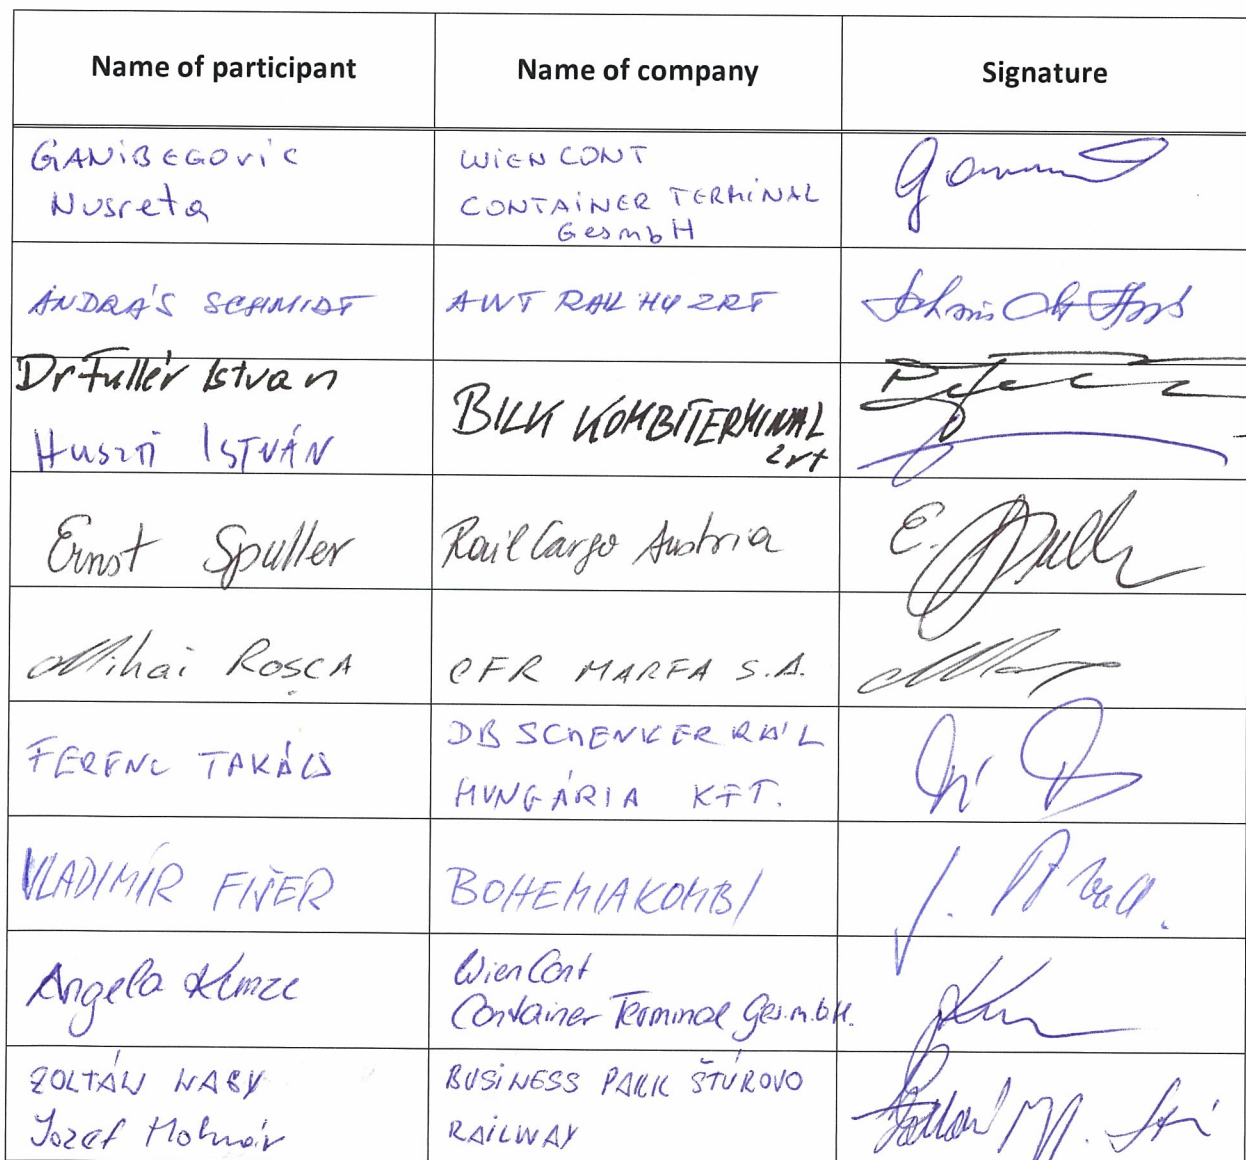 Name of participant Name of company Signature
GANIBEGOVIC
Nusreta
WIENCONT
CONTAINER TERMINAL
GesmbH
ANDRÁS SCHMIDT
AWT RAIL HU ZRT
Dr Fullér Istvan
Huszti ISTVÁN
BILK KOMBITERMINAL
zrt
Ernst Spuller
Rail Cargo Austria
E. Spuller
Mihai ROŞCA
CFR MARFA S.A.
FERENC TAKÁCS
DB SCHENKER RAIL
HUNGÁRIA KFT.
VLADIMÍR FIŠER
BOHEMIAKOMBI
Angela
WienCont
Container Terminal Ges.m.b.H.
ZOLTÁN NAGY
Jozef Molnár
BUSINESS PARK ŠTÚROVO
RAILWAY